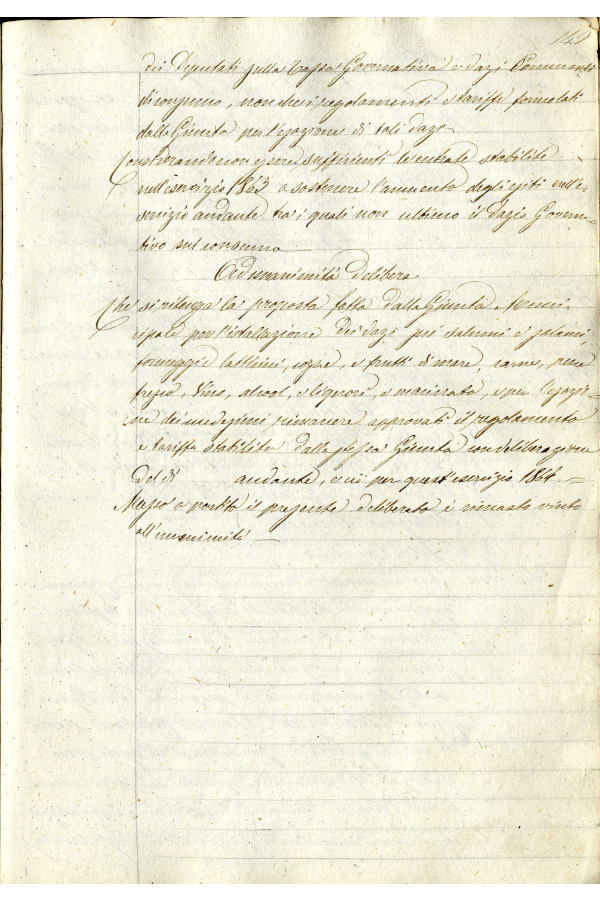 149
dei Deputati sulla tassa Governativa e dazi Comunali
di consumo, non che i regolamenti e tariffe formolati
dalla Giunta per l'esazione di tali dazi
Considerando non essere sufficienti le entrate stabilite
nell'esercizio 1863 a sostenere l'aumento degli esiti nell'e=
sercizio andante tra i quali non ultimo il dazio Governa=
tivo sul consumo
Ad unanimità delibera
Che si ritenga la proposta fatta dalla Giunta Muni
cipale per l'istallazione dei dazi sui salumi e salami,
formaggi e latticini, e frutti di mare, carne, pesce
fresco, vino, alcool, e liquori, e macinato, e per l'esazio=
ne dei medesimi rimanere approvati il regolamento
e tariffa stabilito dalla stessa Giunta con deliberazione
del dì andante, e ciò per quest'esercizio 1864 =
Messo a partito il presente deliberato è rimasto vinto
all'unanimità